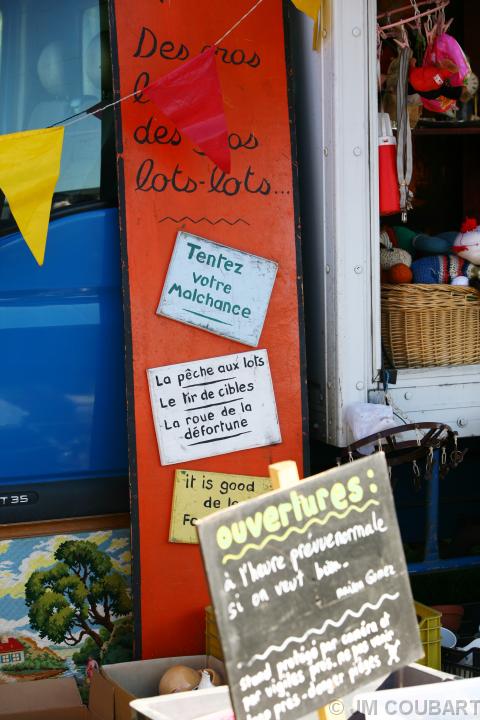 Des gros
des gros
lots-lots...
Tentez
votre
Malchance
La pêche aux lots
Le tir de cibles
La roue de la
défortune
it is good
de
ouvertures:
à l'heure prévuenormale
si on veut bien.
stand protégé par caméra et
par vigiles près. ne pas venir
près-danger pièges
T 35
© JM COUBART